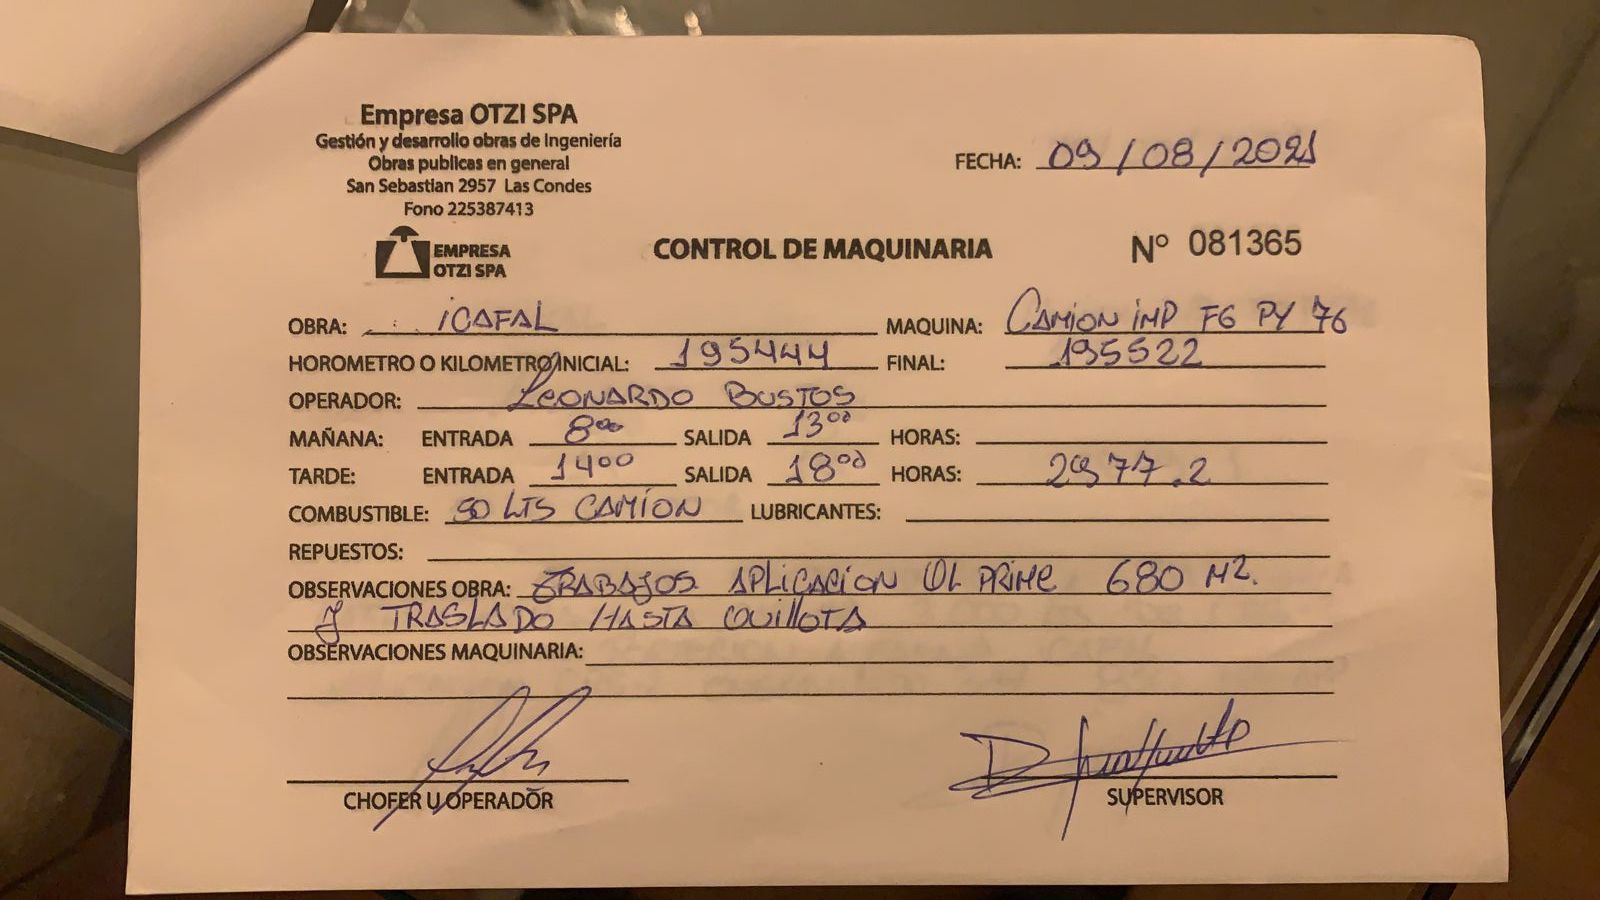 Empresa OTZI SPA
Gestión y desarrollo obras de Ingeniería
Obras publicas en general
San Sebastian 2957 Las Condes
Fono 225387413
FECHA: 09/08/2021
EMPRESA
OTZI SPA
CONTROL DE MAQUINARIA
Nº 081365
OBRA: iCAFAL MAQUINA: CAMION iMP FG PY 76
HOROMETRO O KILOMETRO INICIAL: 195444 FINAL: 195522
OPERADOR: LEONARDO BUSTOS
MAÑANA: ENTRADA 8⁰⁰ SALIDA 13⁰⁰ HORAS:
TARDE: ENTRADA 14⁰⁰ SALIDA 18⁰⁰ HORAS: 2977.2
COMBUSTIBLE: 50 LTS CAMION LUBRICANTES:
REPUESTOS:
OBSERVACIONES OBRA: TRABAJOS APLICACION OL PRIME 680 M2.
Y TRASLADO HASTA QUILLOTA
OBSERVACIONES MAQUINARIA:
CHOFER U OPERADOR SUPERVISOR